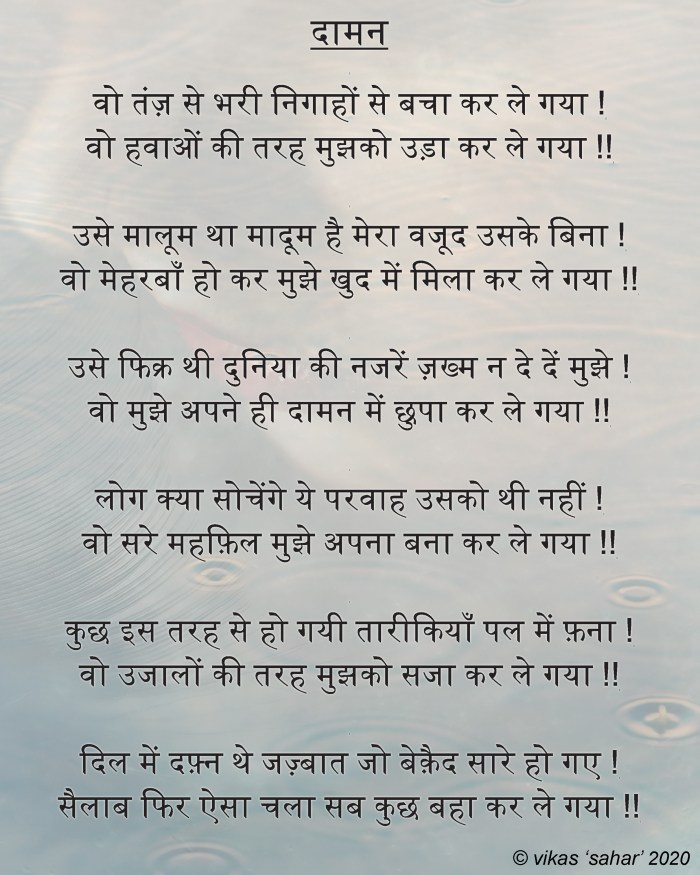 दामन
वो तंज़ से भरी निगाहों से बचा कर ले गया !
वो हवाओं की तरह मुझको उड़ा कर ले गया !!
उसे मालूम था मादूम है मेरा वजूद उसके बिना !
वो मेहरबाँ हो कर मुझे खुद में मिला कर ले गया !!
उसे फिक्र थी दुनिया की नजरें ज़ख्म न दे दें मुझे !
वो मुझे अपने ही दामन में छुपा कर ले गया !!
लोग क्या सोचेंगे ये परवाह उसको थी नहीं !
वो सरे महफ़िल मुझे अपना बना कर ले गया !!
कुछ इस तरह से हो गयी तारीकियाँ पल में फ़ना !
वो उजालों की तरह मुझको सजा कर ले गया !!
दिल में दफ़्न थे जज़्बात जो बेक़ैद सारे हो गए !
सैलाब फिर ऐसा चला सब कुछ बहा कर ले गया !!
© vikas ‘sahar’ 2020